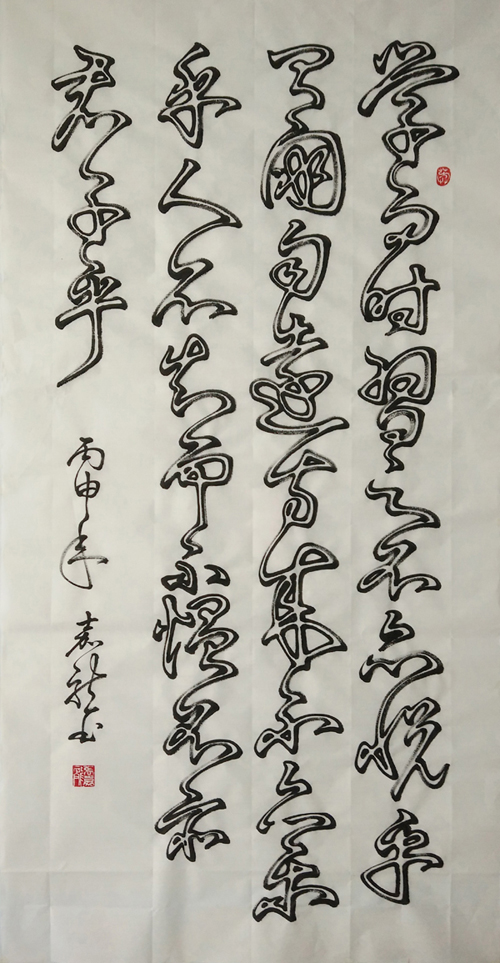 学而时習之不亦悦乎
有朋自遠方来不亦乐
乎人不知而不愠不亦
君子乎
丙申年 嘉龙书